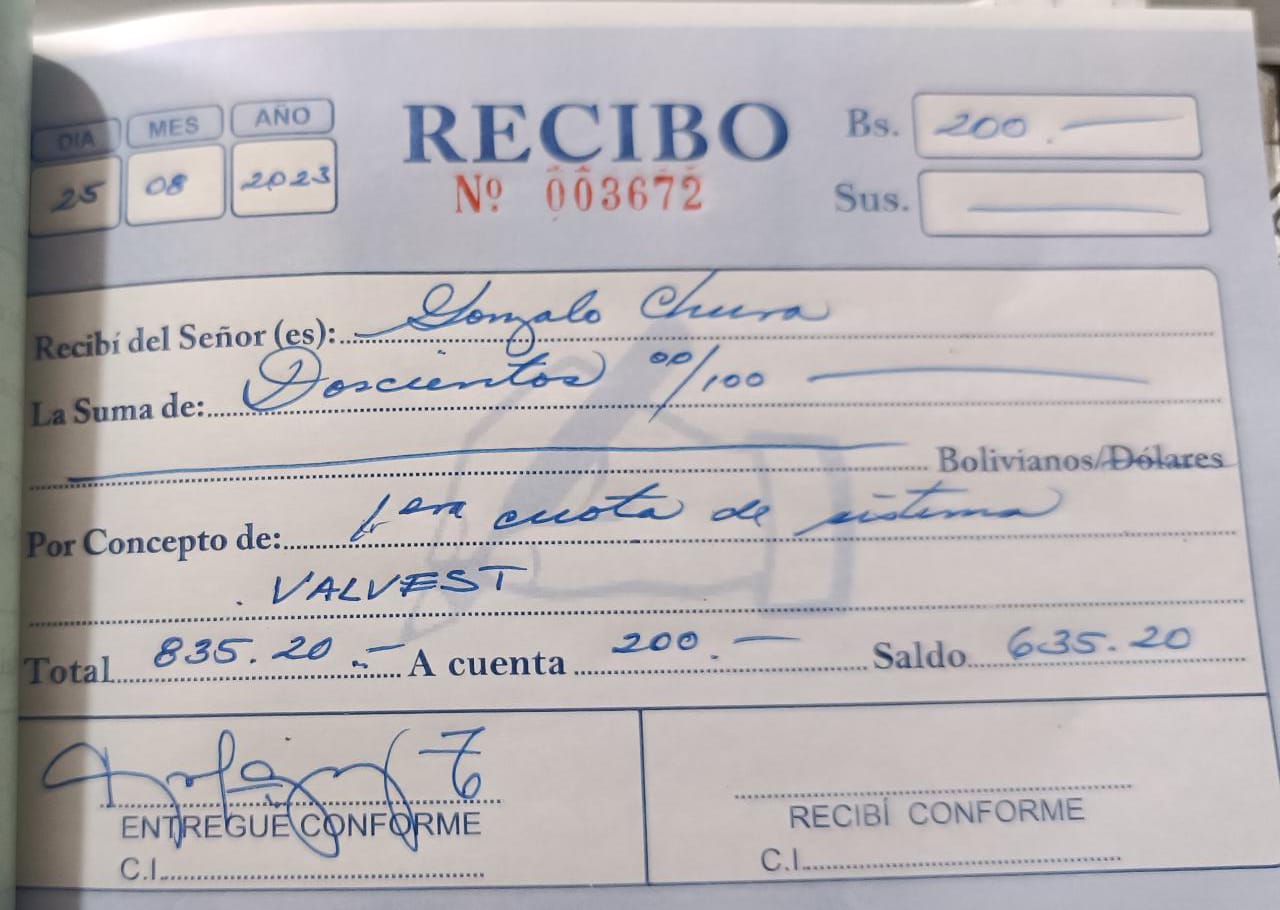 DIA MES AÑO
25 08 2023
RECIBO
Nº 003672
Bs. 200.
Sus.
Recibí del Señor (es): Gonzalo Chura
La Suma de: Doscientos 00/100
Bolivianos/Dólares
Por Concepto de: 1era cuota de sistema
VALVEST
Total 835.20 A cuenta 200. Saldo 635.20
ENTREGUE CONFORME
C.I.
RECIBÍ CONFORME
C.I.